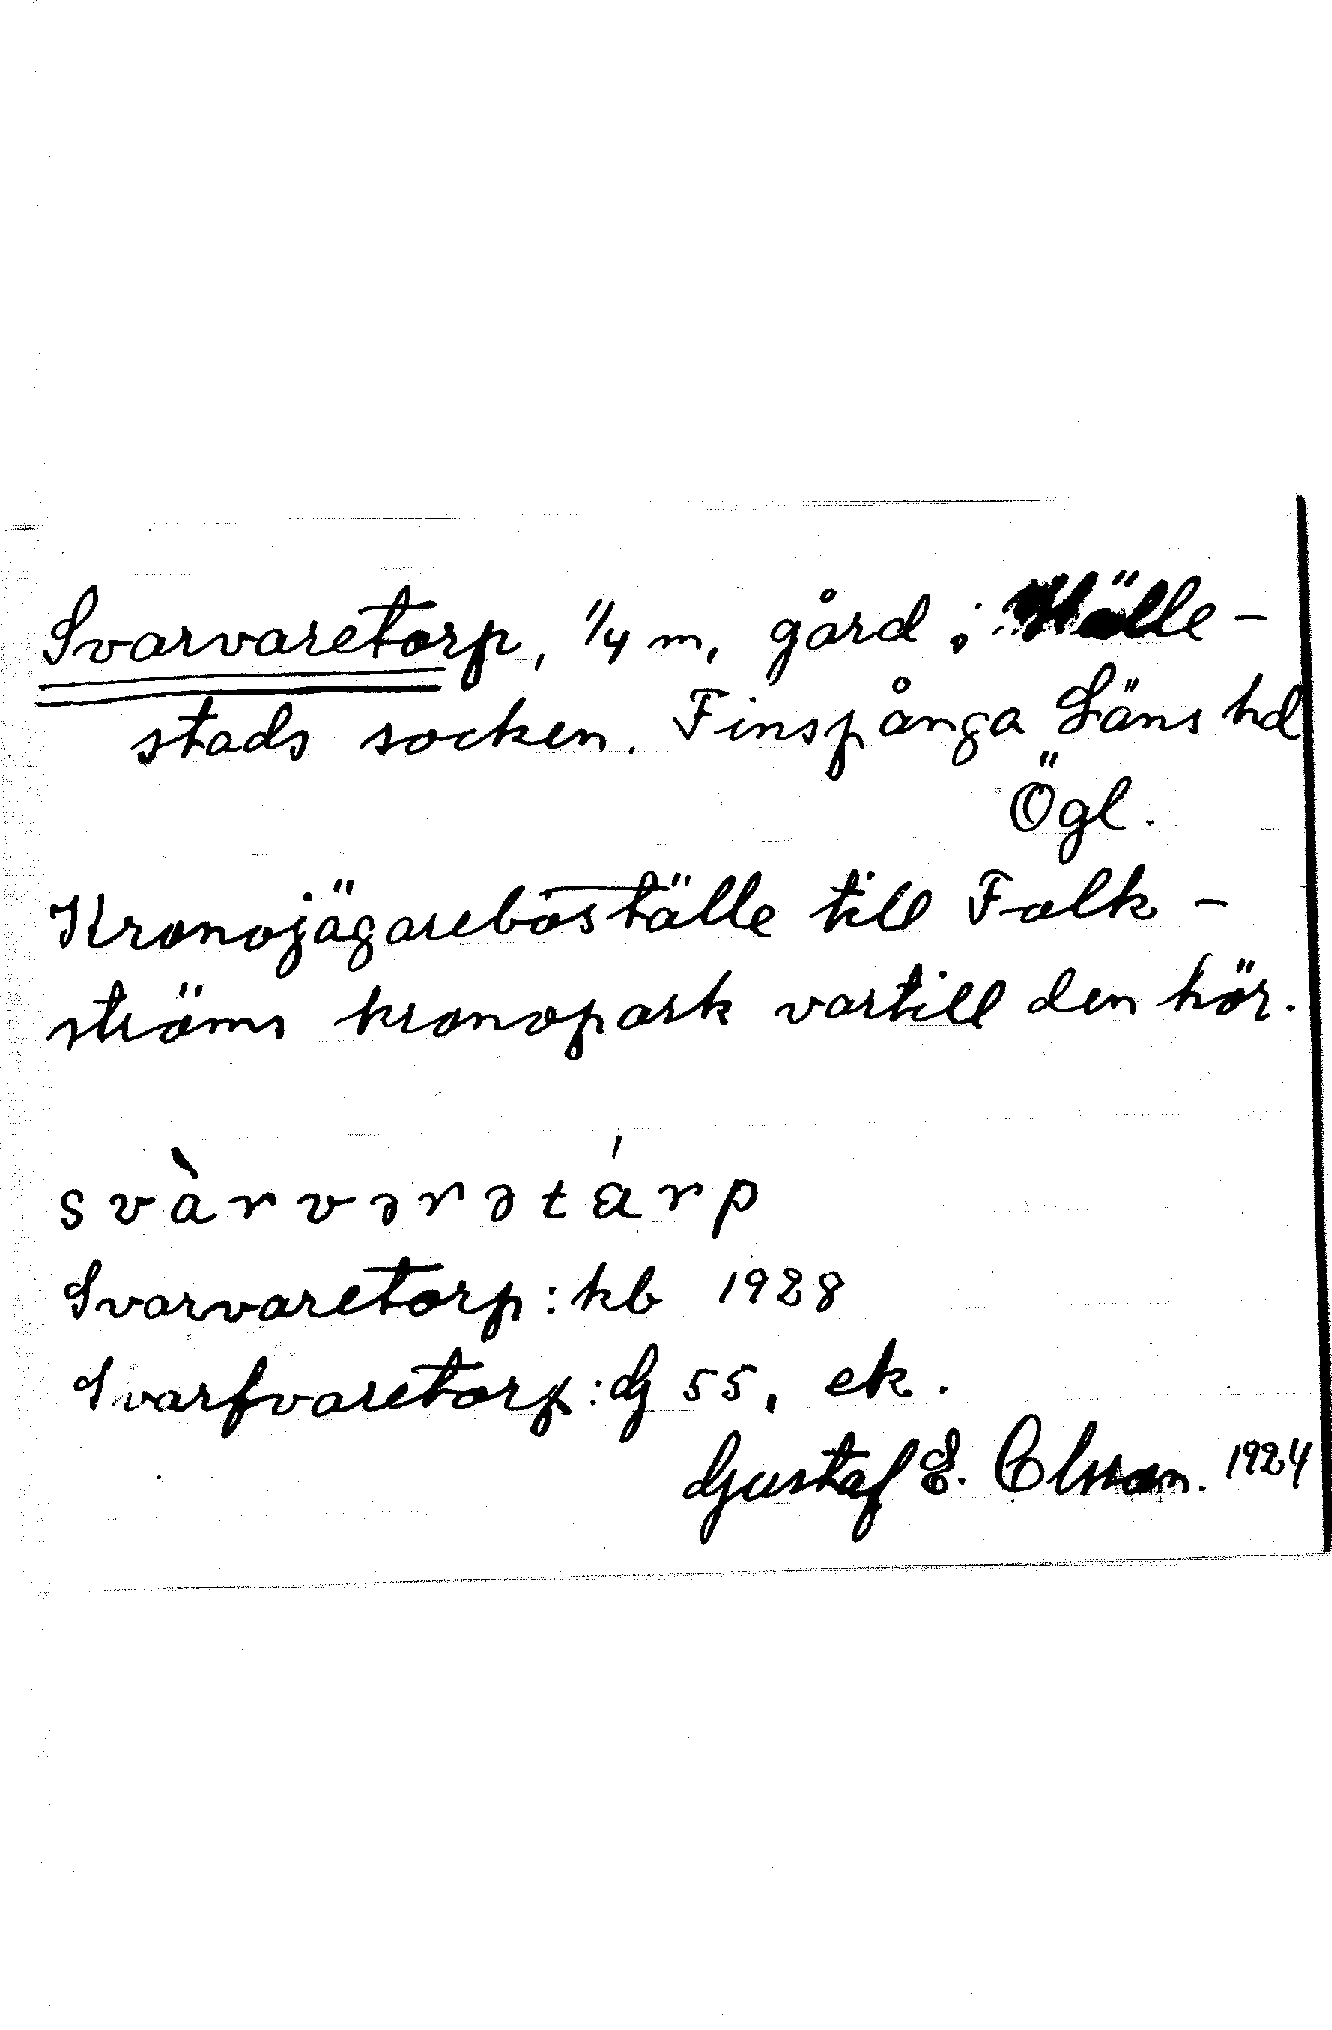 Svarvaretorp, 1/4 m, gård i Hälle-
stads socken. Finspånga Läns hd
Ögl.
Kronojägareboställe till Folk-
ströms kronopark vartill den hör.
svàrvərətárp
Svarvaretorp: kb 1928
Svarfvaretorp: Gj 55, ek.
Gustaf E. Olsson. 1924